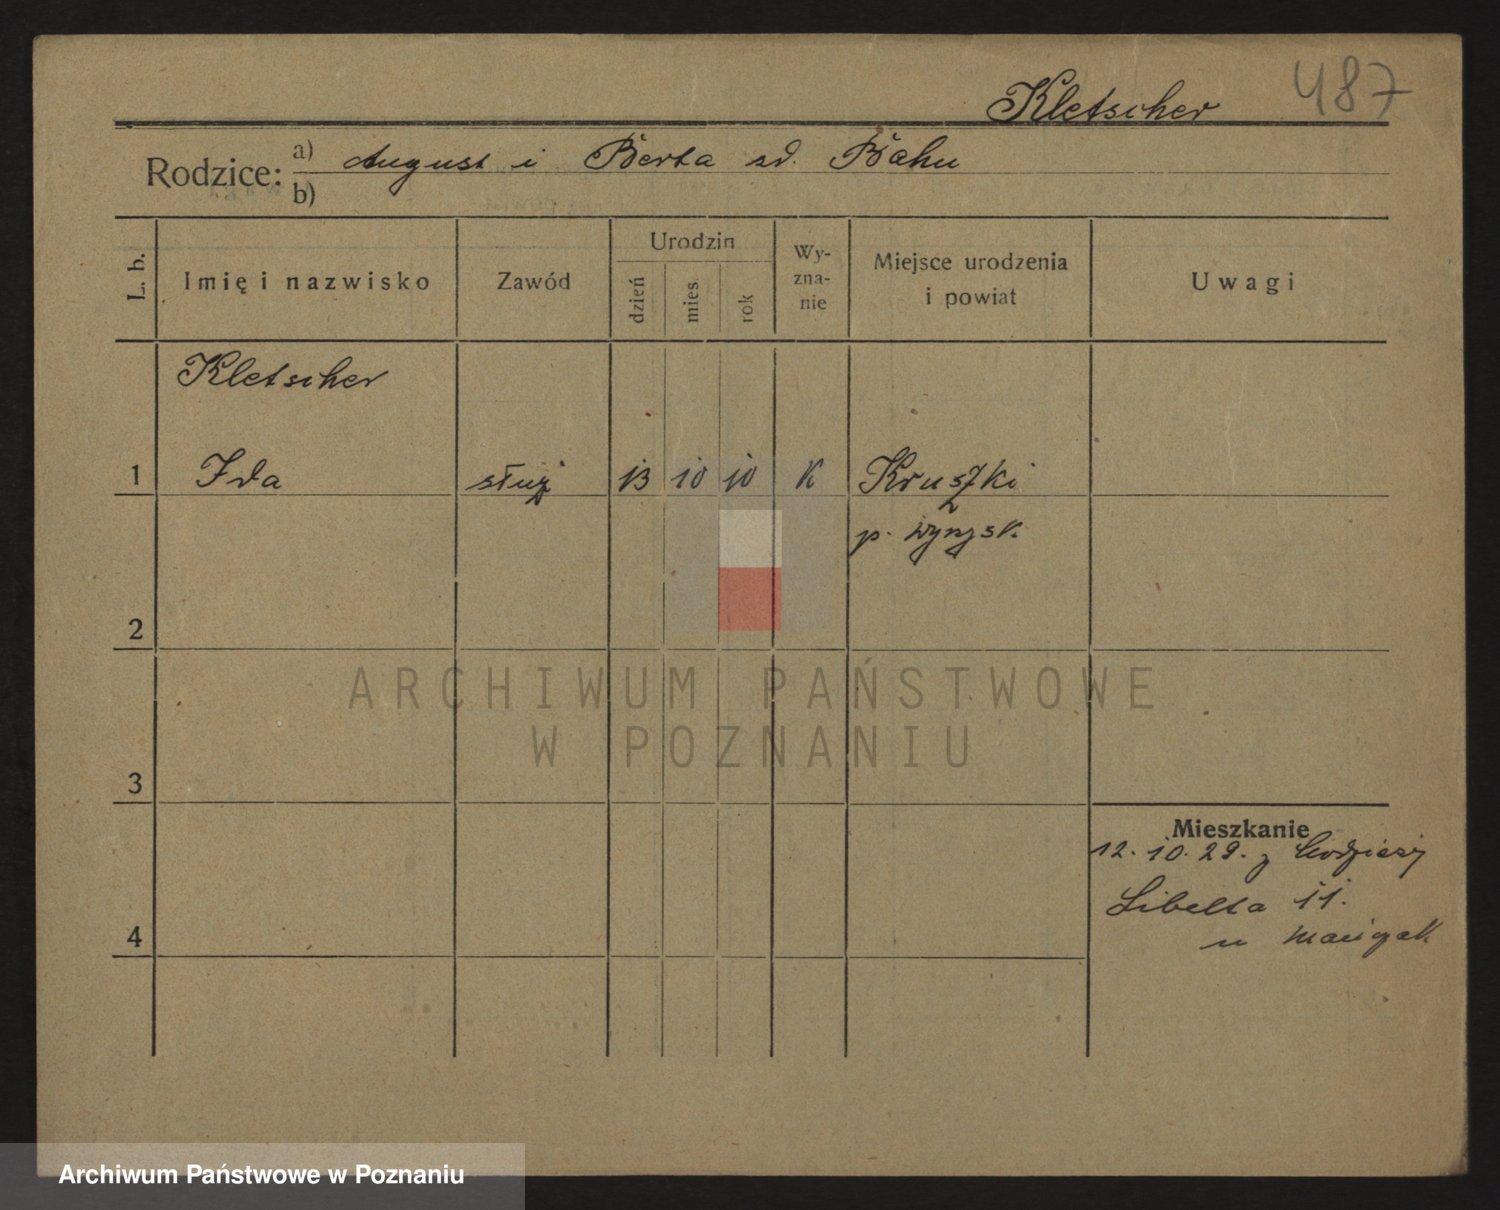 Kletscher 487
Rodzice: a) August i Berta zd. Bahn
b)
L. b. Imię i nazwisko Zawód Urodzin dzień mies. rok Wy-zna-nie Miejsce urodzenia i powiat Uwagi
Kletscher
1 Ida służ 13 10 10 K Kruszki
p. wyrzysk.
2
ARCHIWUM PAŃSTWOWE
W POZNANIU
3
Mieszkanie
12. 10. 29. z Chodzieży
Libelta 11.
4 u
Archiwum Państwowe w Poznaniu